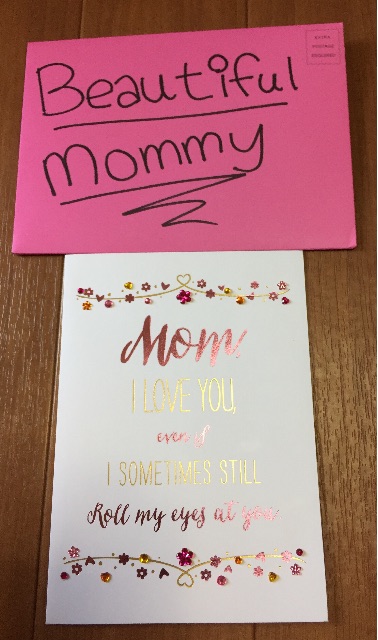 Beautiful
Mommy
EXTRA
POSTAGE
REQUIRED
Mom
I LOVE YOU,
even if
I SOMETIMES STILL
Roll my eyes at you.